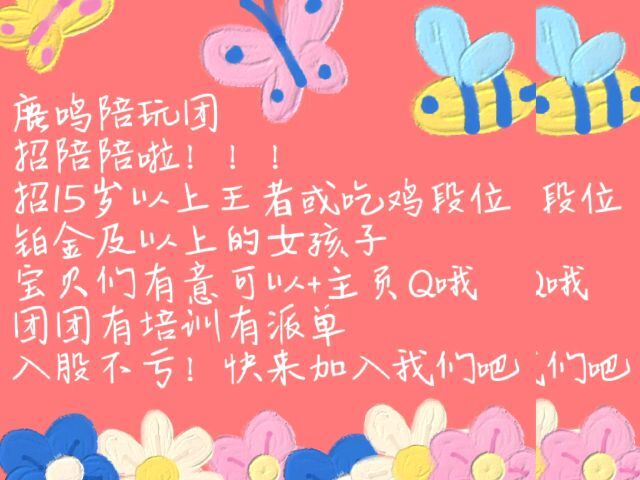 鹿鸣陪玩团
招陪陪啦！！！
招15岁以上王者或吃鸡段位 段位
铂金及以上的女孩子
宝贝们有意可以+主页Q哦 Q哦
团团有培训有派单
入股不亏！快来加入我们吧 们吧